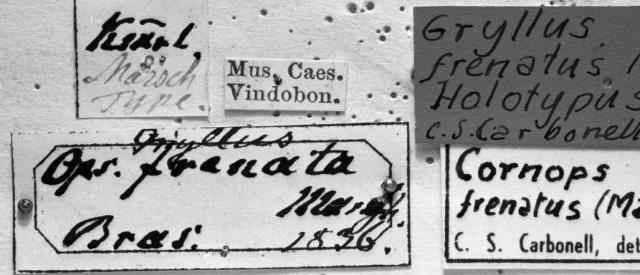 Marsch
Type.
Mus. Caes.
Vindobon.
Gryllus
frenatus
Holotypus
C.S. Carbonell
Gryllus
Ops. frenata
Marsch.
Bras: 1836.
Cornops
frenatus (Ma
C. S. Carbonell, det